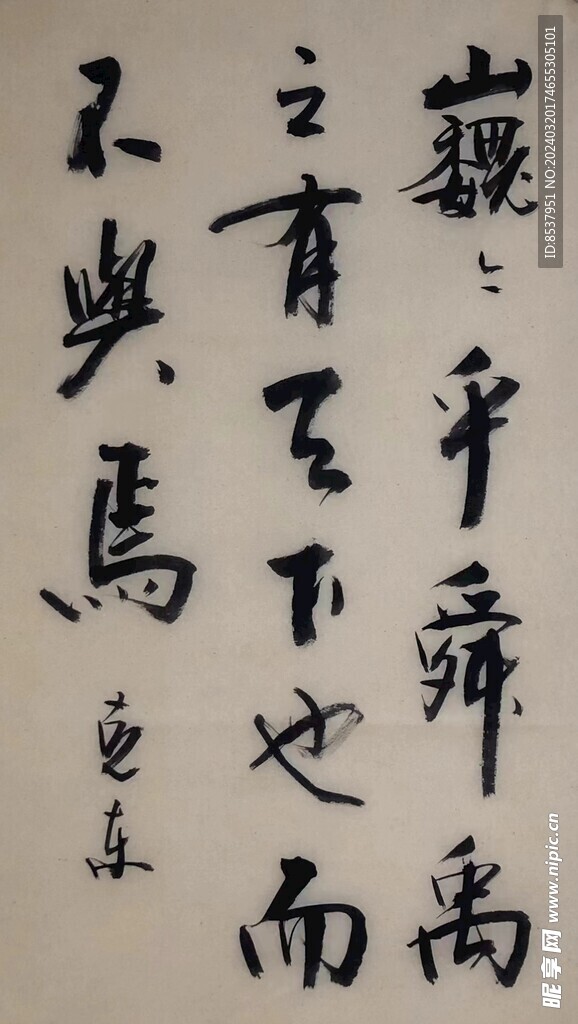 巍〻乎舜禹
之有天下也而
不與焉
克東
ID:8537951 NO:20240320174655305101
昵享网 www.nipic.cn